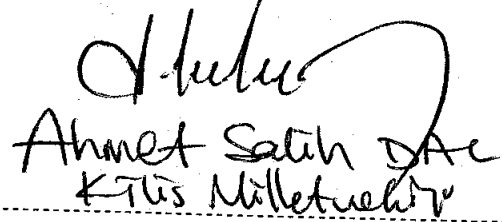 Ahmet Salih DAL
Kilis Milletvekili